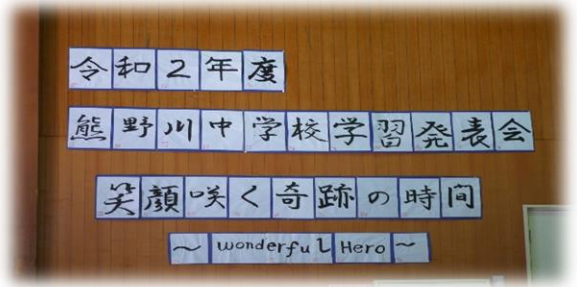 令和2年度
熊野川中学校学習発表会
笑顔咲く奇跡の時間
～wonderful Hero～